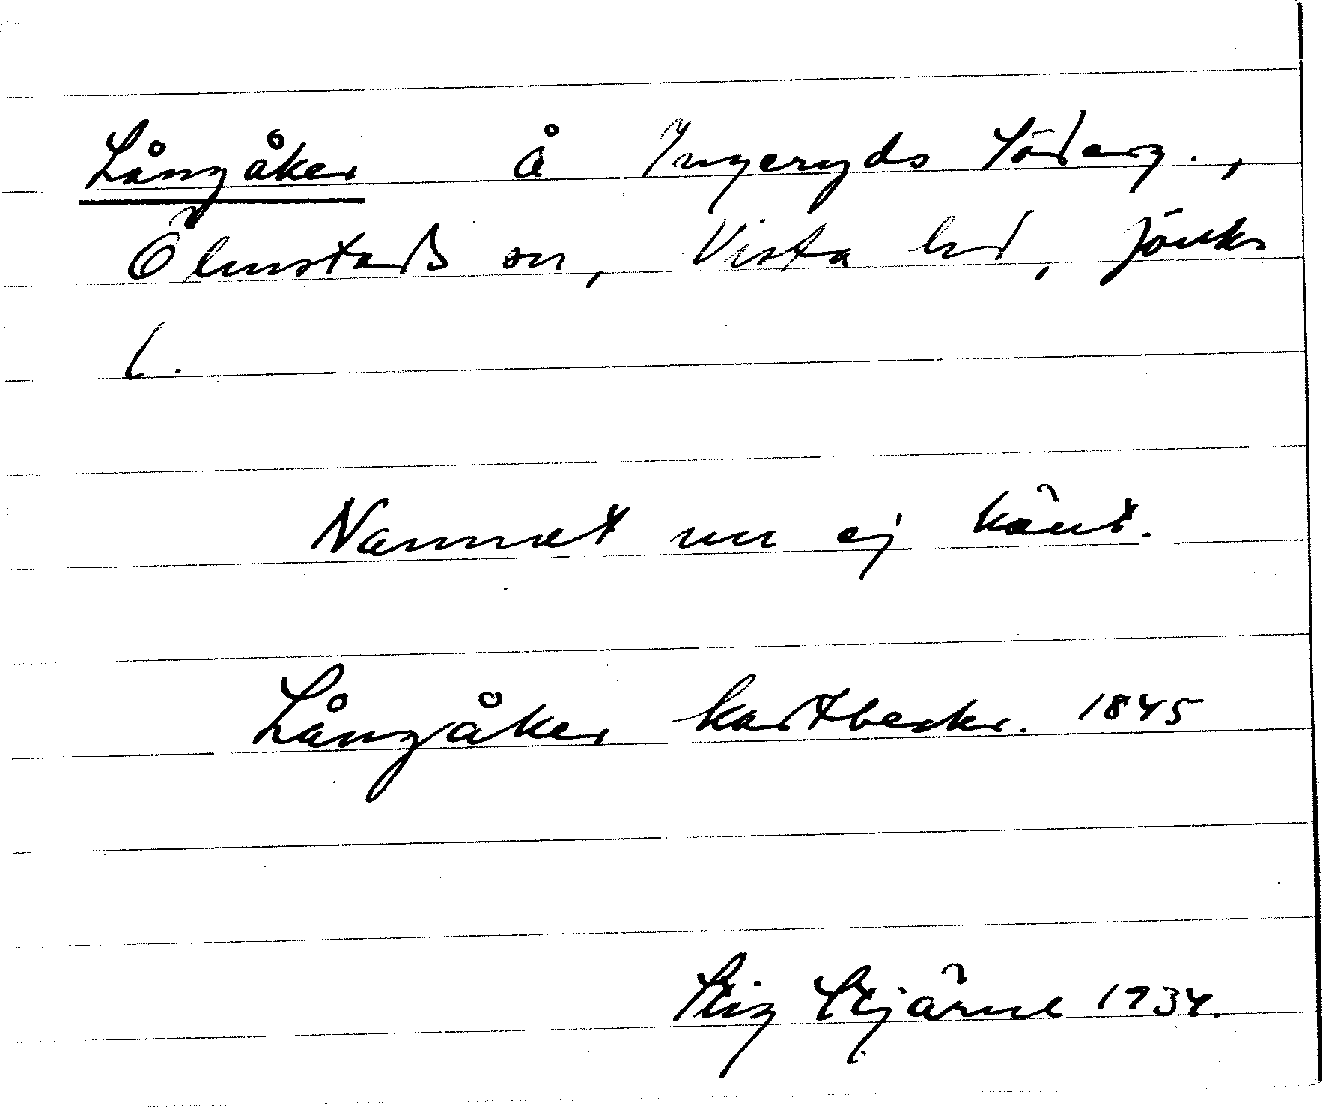 Långåker å Ingeryds Söderg.,
Ölmstads sn, Vista hd, Jönk.
l.
Namnet nu ej känt.
Långåker kartbeskr. 1845
Stig Stjärne 1934.